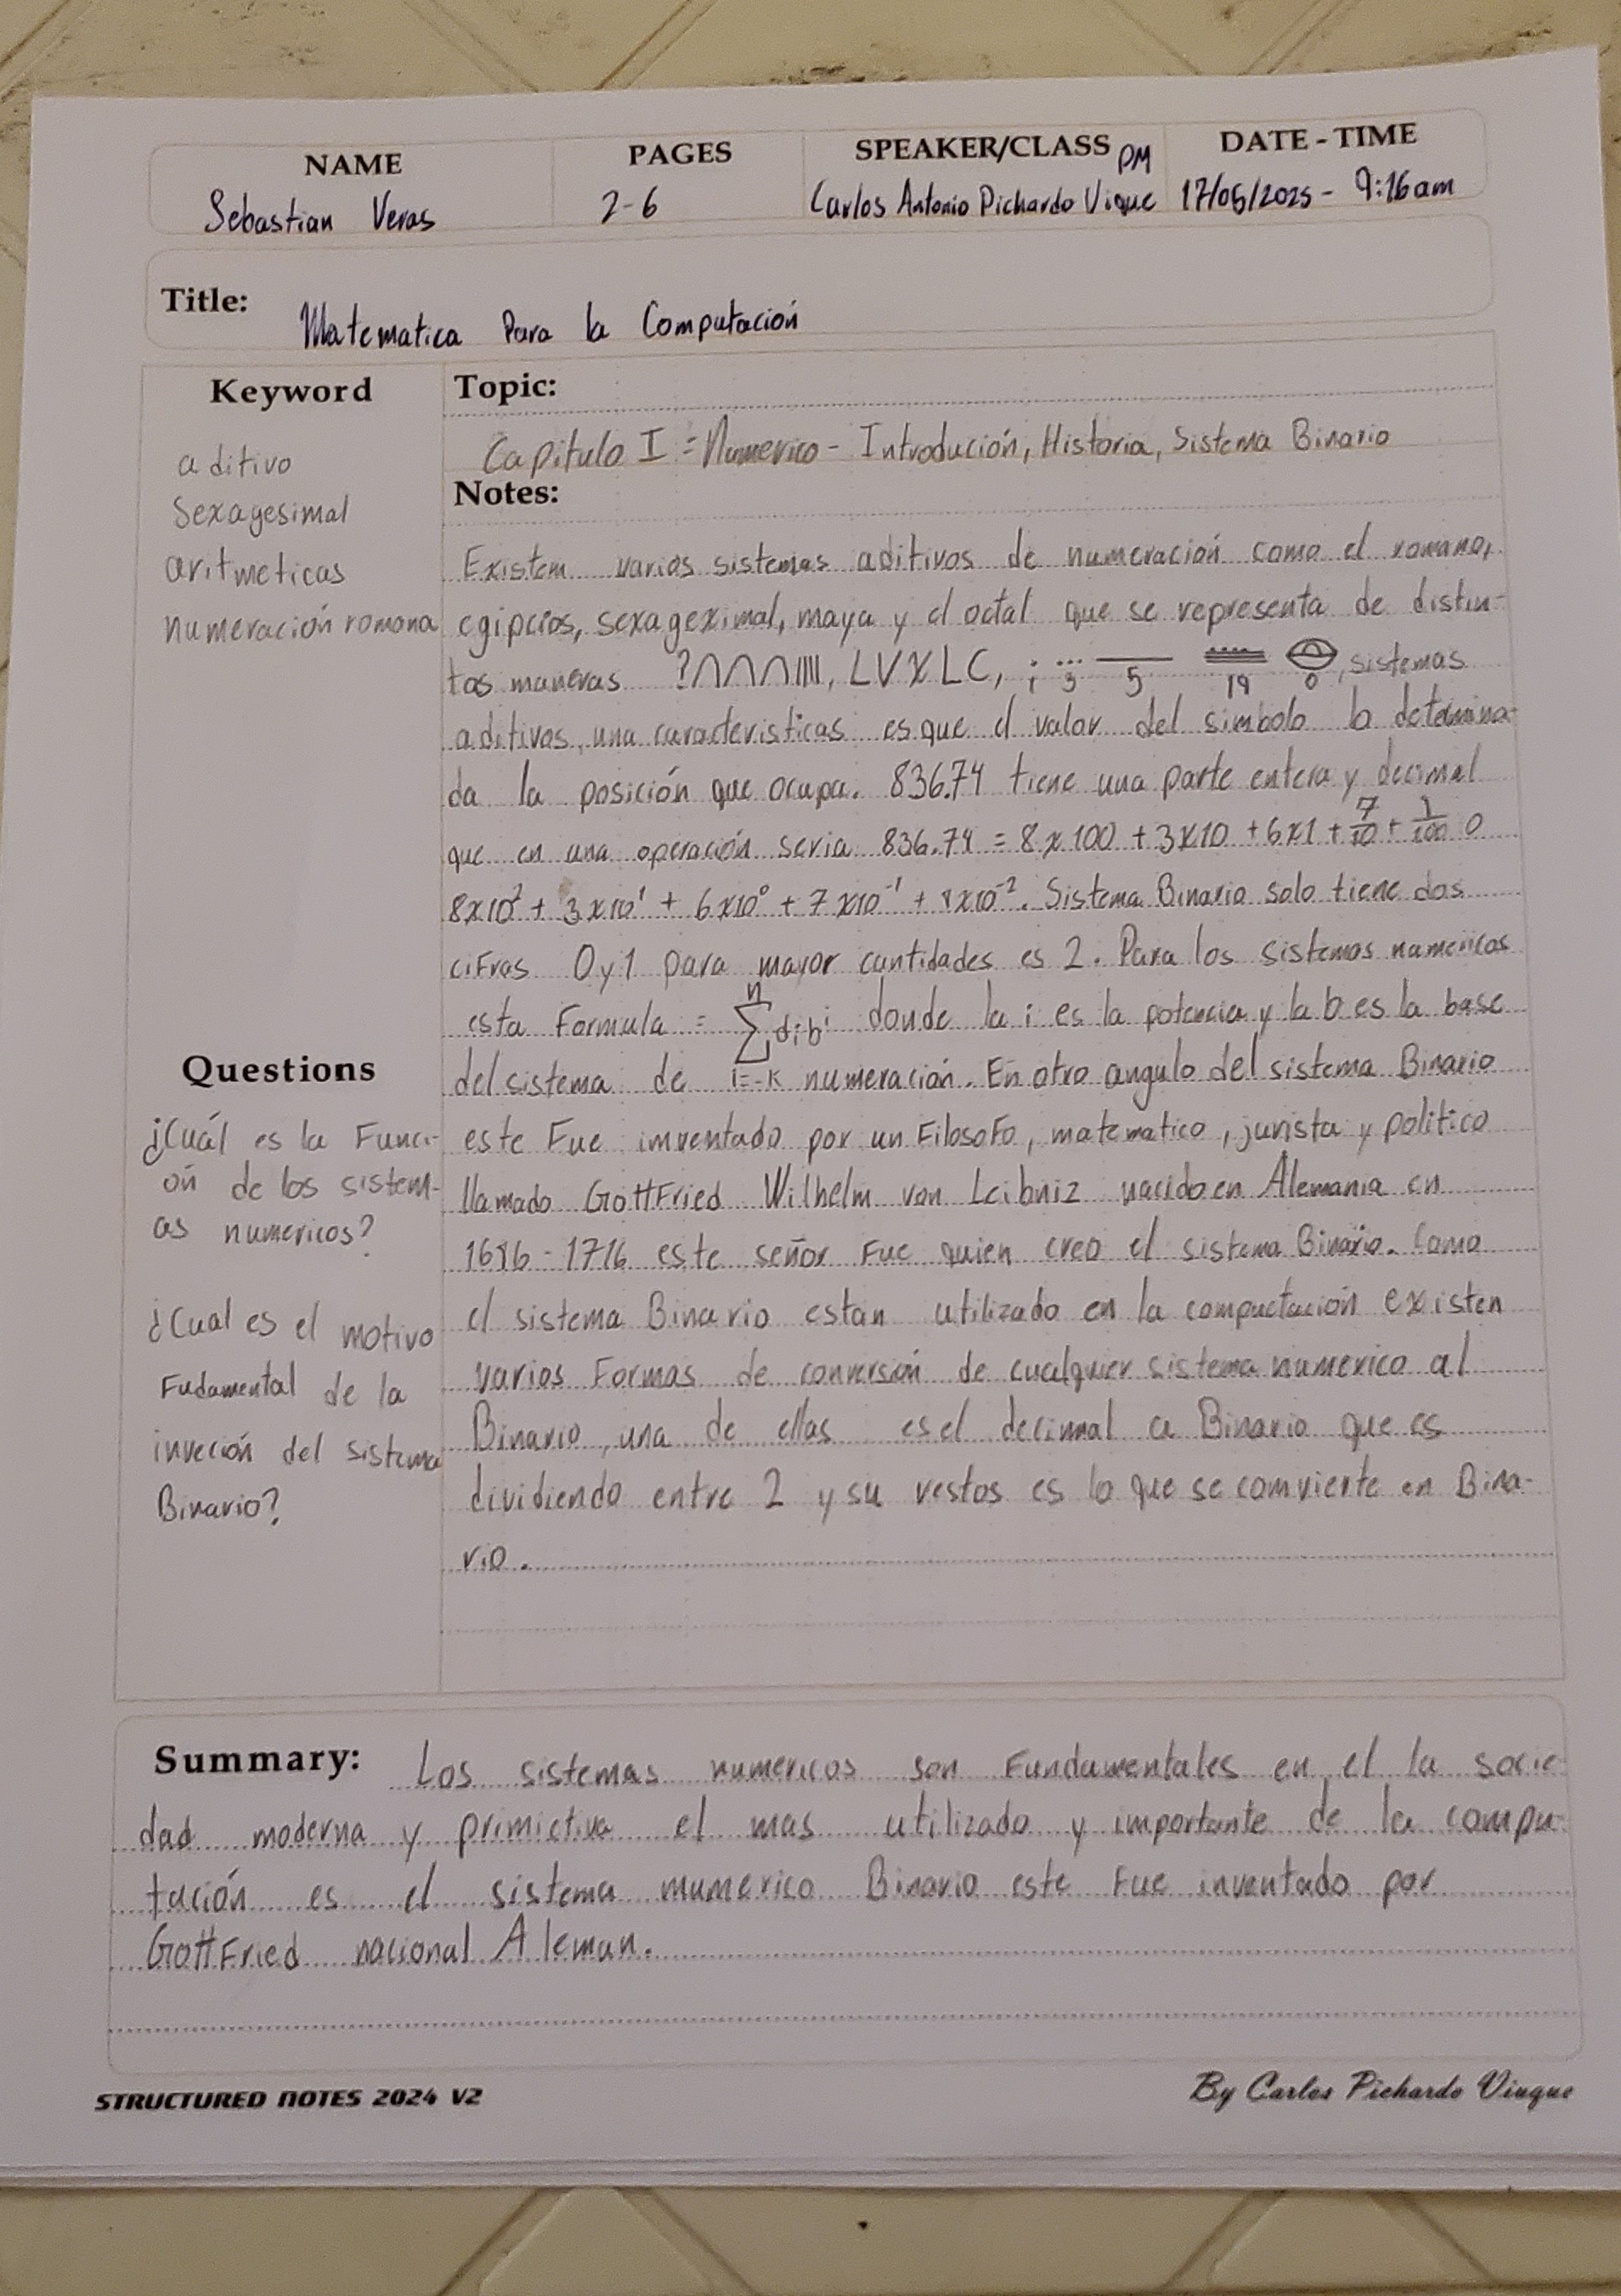 NAME PAGES SPEAKER/CLASS PM DATE - TIME
Sebastian Veras 2-6 Carlos Antonio Pichardo Vique 17/05/2025 - 9:16am
Title: Matematica Para la Computación
Keyword
aditivo
Sexagesimal
aritmeticas
numeración romana
Topic:
Capitulo I = Numerico - Introdución, Historia, Sistema Binario
Notes:
Existem varios sistemas aditivos de numeración como el romano,
egipcios, sexageximal, maya y el octal que se representa de distin-
tas maneras ?∩∩∩||||, LVXLC, 1 3 5 19 0, sistemas
aditivos, una caracteristicas es que el valor del simbolo lo determina
da la posición que ocupa. 836.74 tiene una parte entera y decimal
que en una operación seria 836.74 = 8x100 + 3x10 + 6x1 + 7/10 + 1/100 o
8x10² + 3x10¹ + 6x10⁰ + 7x10⁻¹ + 1x10⁻². Sistema Binario solo tiene dos
ciFras 0y1 para mayor cantidades es 2. Para los sistemas numericos
esta Formula = n∑i=-k dibⁱ donde la i es la potencia y la b es la base
del sistema de numeración. En otro angulo del sistema Binario
este Fue imventado por un FilosoFo, matematico, jurista y politico
llamado GottFried Wilhelm von Leibniz nacido en Alemania en
1696 - 1716 este señor Fue quien creo el sistema Binario. Como
el sistema Binario estan utilizado en la compuctación existen
varios Formas de conversión de cualquier sistema numerico al
Binario, una de ellas es el decimal a Binario que es
dividiendo entre 2 y su restos es lo que se comvierte en Bina-
rio.
Questions
¿Cuál es la Funci-
ón de los sistem-
as numericos?
¿Cual es el motivo
Fudamental de la
inveción del sistema
Binario?
Summary: Los sistemas numericos son Fundamentales en el la socie-
dad moderna y primictiva el mas utilizado y importante de la compu-
tación es el sistema mumerico Binario este Fue inventado por
GottFried nacional Aleman.
STRUCTURED NOTES 2024 V2
By Carlos Pichardo Viuque